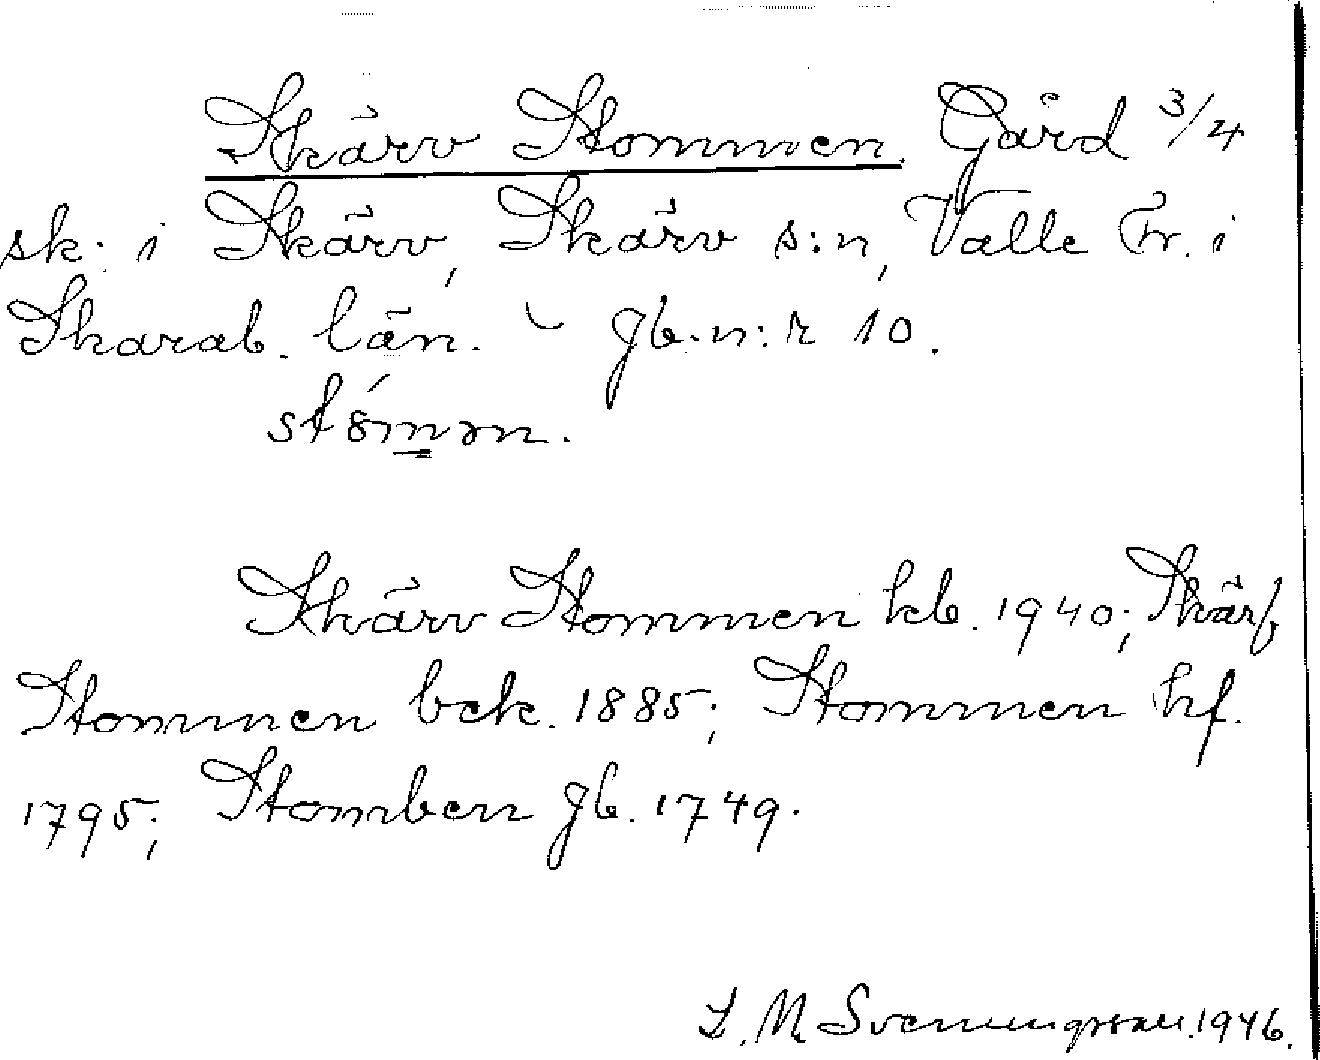 Skärv Stommen. Gård 3/4
sk. i Skärv, Skärv s:n, Valle hr. i
Skarab. län. – gb.n:r 10.
stómən.
Skärv Stommen kb. 1940; Skärf
Stommen bek. 1885; Stommen hf.
1795; Stomben gb. 1749.
L. M. Svenungsson. 1946.